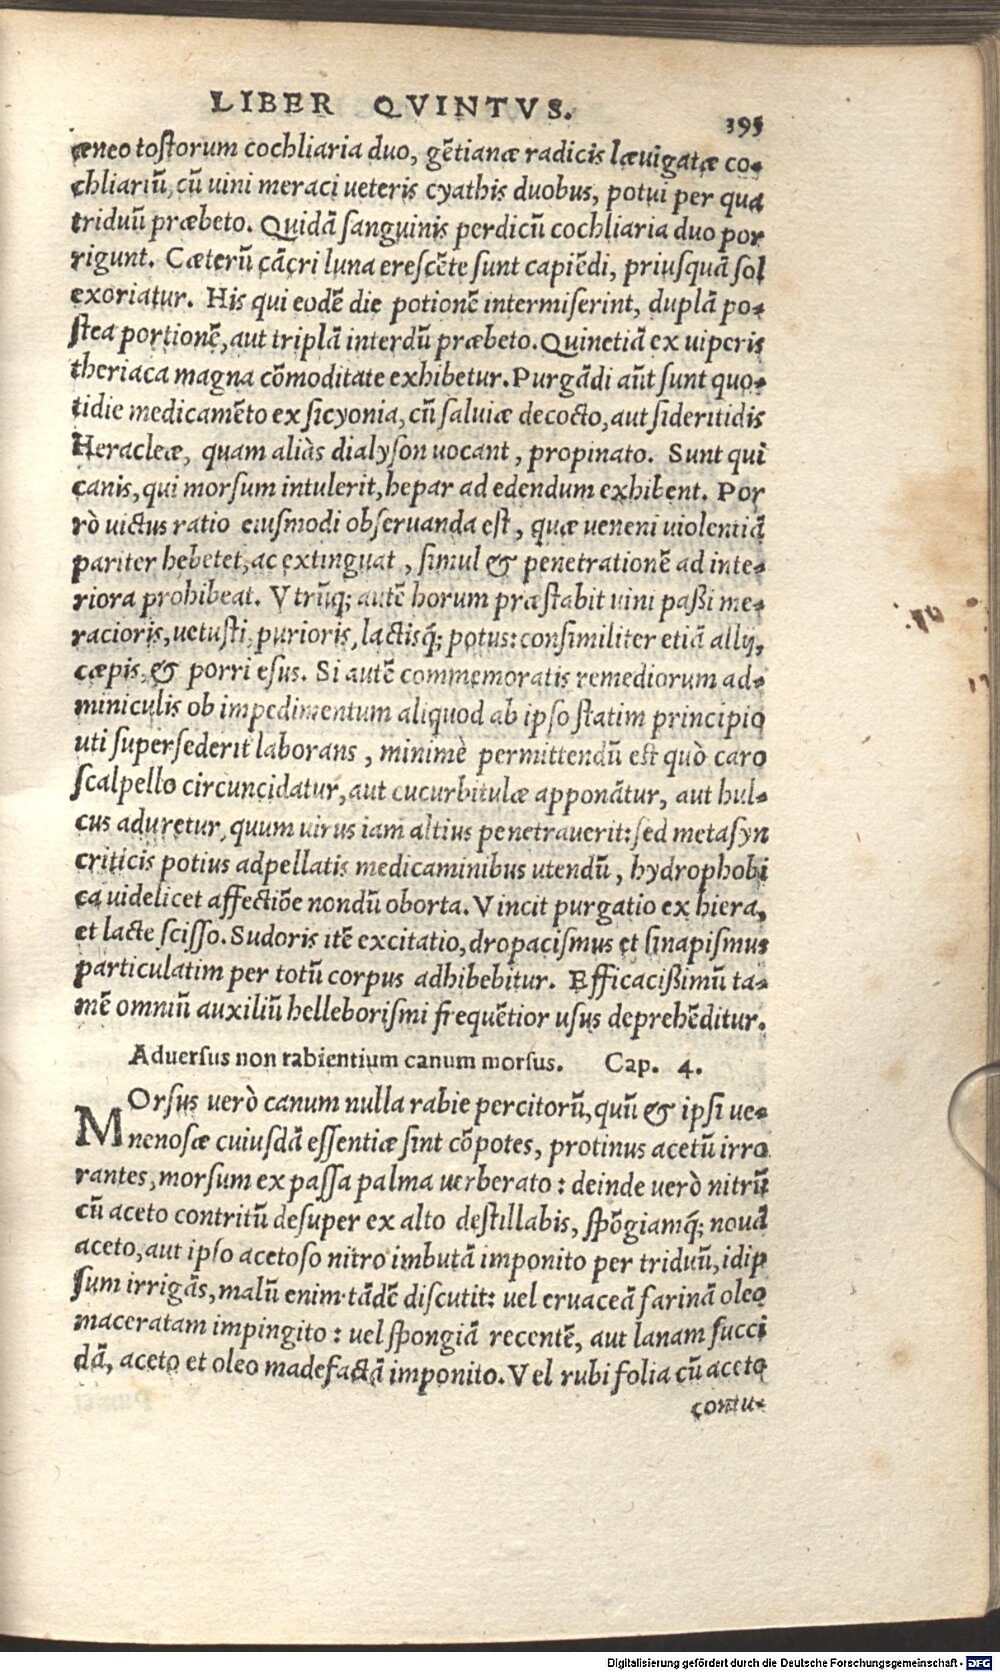 LIBER QVINTVS.
395
æneo toſtorum cochliaria duo, gētianæ radicis læuigatæ co-
chliariū, cū uini meraci ueteris cyathis duobus, potui per qua
triduū præbeto. Quidā ſanguinis perdicū cochliaria duo por
rigunt. Cæterū cācri luna creſcēte ſunt capiēdi, priuſquā ſol
exoriatur. His qui eodē die potionē intermiſerint, duplā po-
ſtea portionē, aut triplā interdū præbeto. Quinetiā ex uiperis
theriaca magna cōmoditate exhibetur. Purgādi aūt ſunt quo-
tidie medicamēto ex ſicyonia, cū ſaluiæ decocto, aut ſideritidis
Heracleæ, quam aliàs dialyſon uocant, propinato. Sunt qui
canis, qui morſum intulerit, hepar ad edendum exhibent. Por
rò uictus ratio eiuſmodi obſeruanda eſt, quæ ueneni uiolentiā
pariter hebetet, ac extinguat, ſimul & penetrationē ad inte-
riora prohibeat. Vtrūq; autē horum præſtabit uini paßi me-
racioris, uetuſti, purioris, lactisq́; potus: conſimiliter etiā allij,
cæpis, & porri eſus. Si autē commemoratis remediorum ad-
miniculis ob impedimentum aliquod ab ipſo ſtatim principio
uti ſuperſederit laborans, minimè permittendū eſt quò caro
ſcalpello circuncidatur, aut cucurbitulæ apponātur, aut hul-
cus aduretur, quum uirus iam altius penetrauerit: ſed metaſyn
criticis potius adpellatis medicaminibus utendū, hydrophobi
ca uidelicet affectiōe nondū oborta. Vincit purgatio ex hiera,
et lacte ſciſſo. Sudoris itē excitatio, dropaciſmus et ſinapiſmus
particulatim per totū corpus adhibebitur. Efficacißimū ta-
mē omniū auxiliū helleboriſmi frequētior uſus deprehēditur.
Aduerſus non rabientium canum morſus. Cap. 4.
MOrſus uerò canum nulla rabie percitorū, quū & ipſi ue-
nenoſæ cuiuſdā eſſentiæ ſint cōpotes, protinus acetū irro
rantes, morſum ex paſſa palma uerberato: deinde uerò nitrū
cū aceto contritū deſuper ex alto deſtillabis, ſpōgiamq́; nouā
aceto, aut ipſo acetoſo nitro imbutā imponito per triduū, idip
ſum irrigās, malū enim tādē diſcutit: uel eruaceā farinā oleo
maceratam impingito: uel ſpongiā recentē, aut lanam ſucci
dā, aceto et oleo madefactā imponito. Vel rubi folia cū aceto
contu-
Digitalisierung gefördert durch die Deutsche Forschungsgemeinschaft - DFG